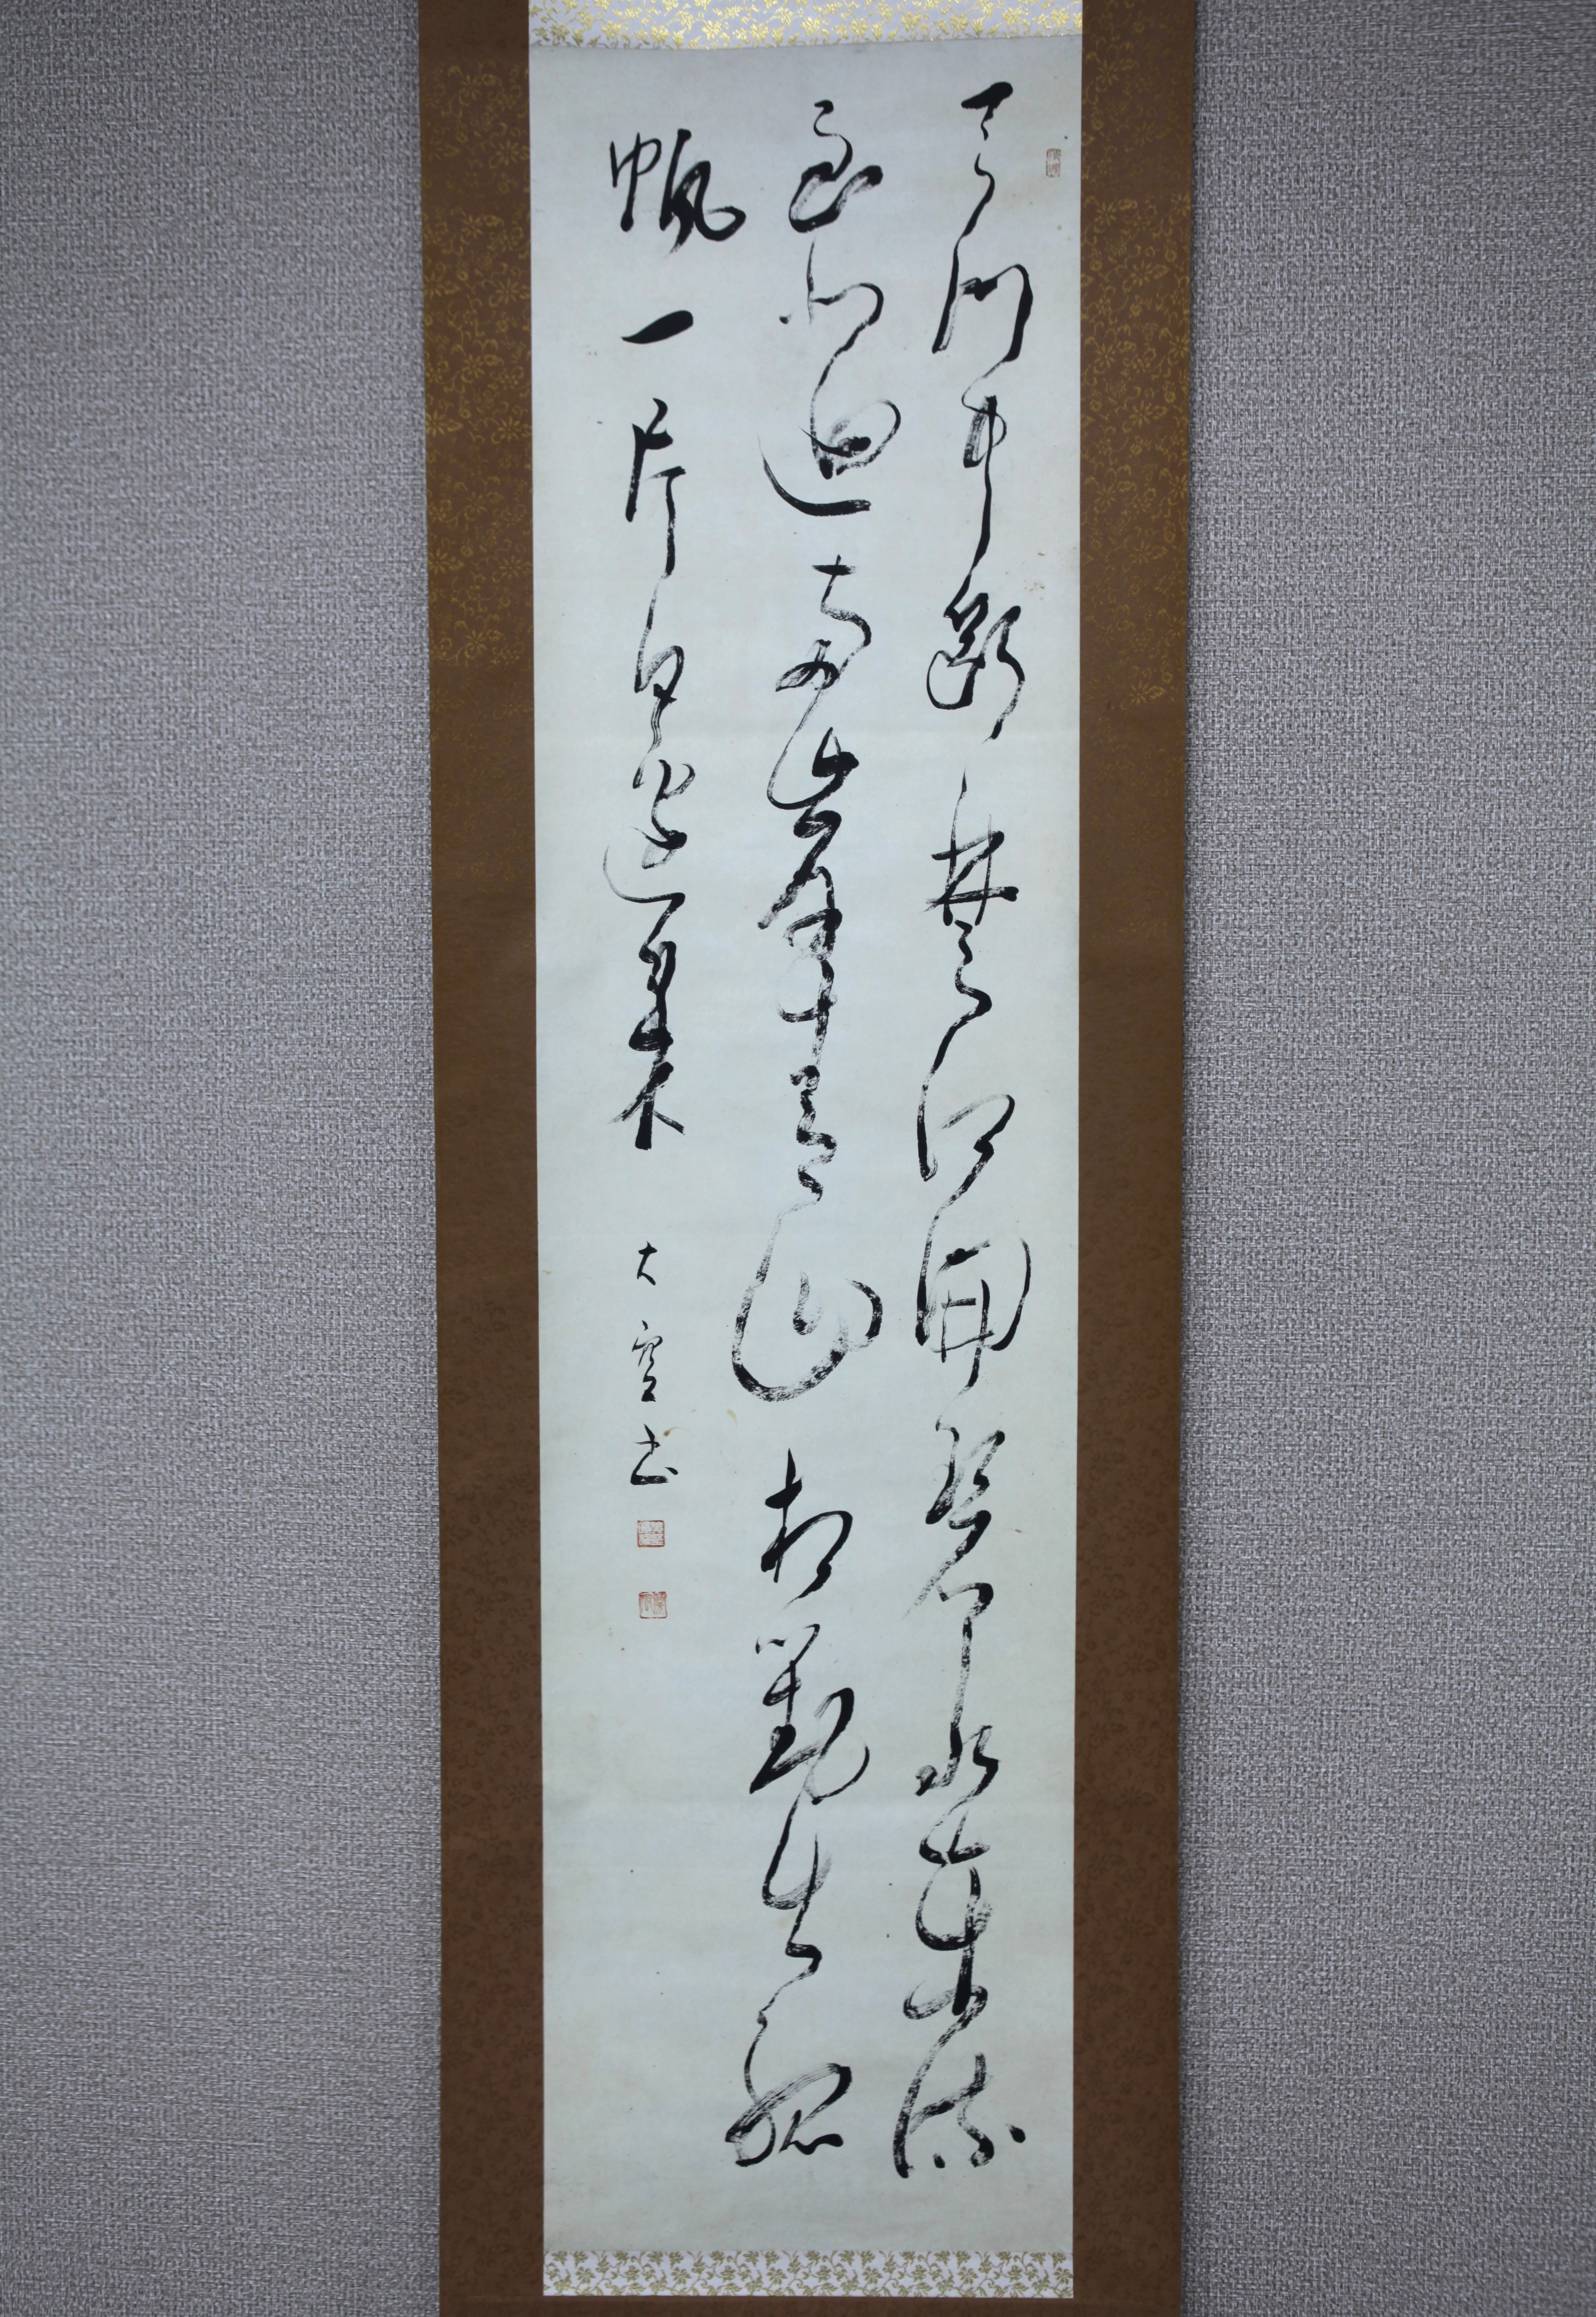 天門中斷楚江開碧水東流
至此迴兩岸青山相對出孤
帆一片日邊來 大書